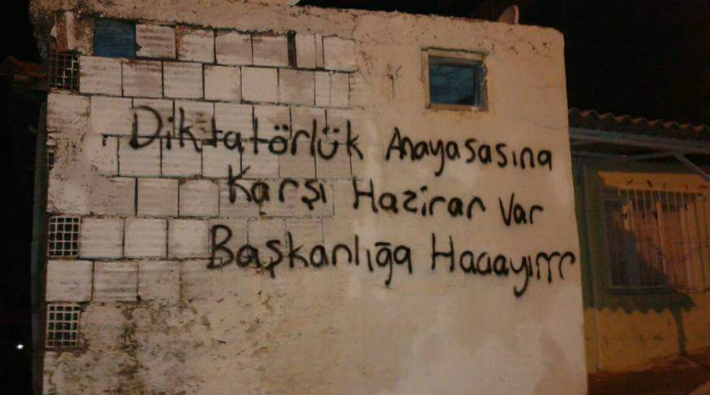 Diktatörlük Anayasasına
Karşı Haziran Var
Başkanlığa Haaayırrr